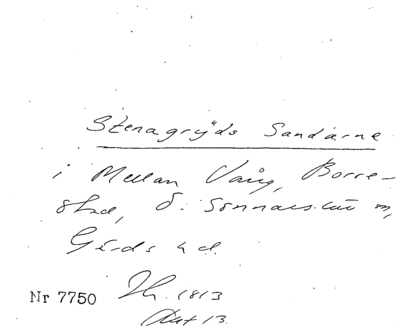 Stenagryds Sandarne
i Mellan Vång, Borre-
stad, Ö. Sönnarslöv sn,
Gärds hd.
Nr 7750 1813
13.